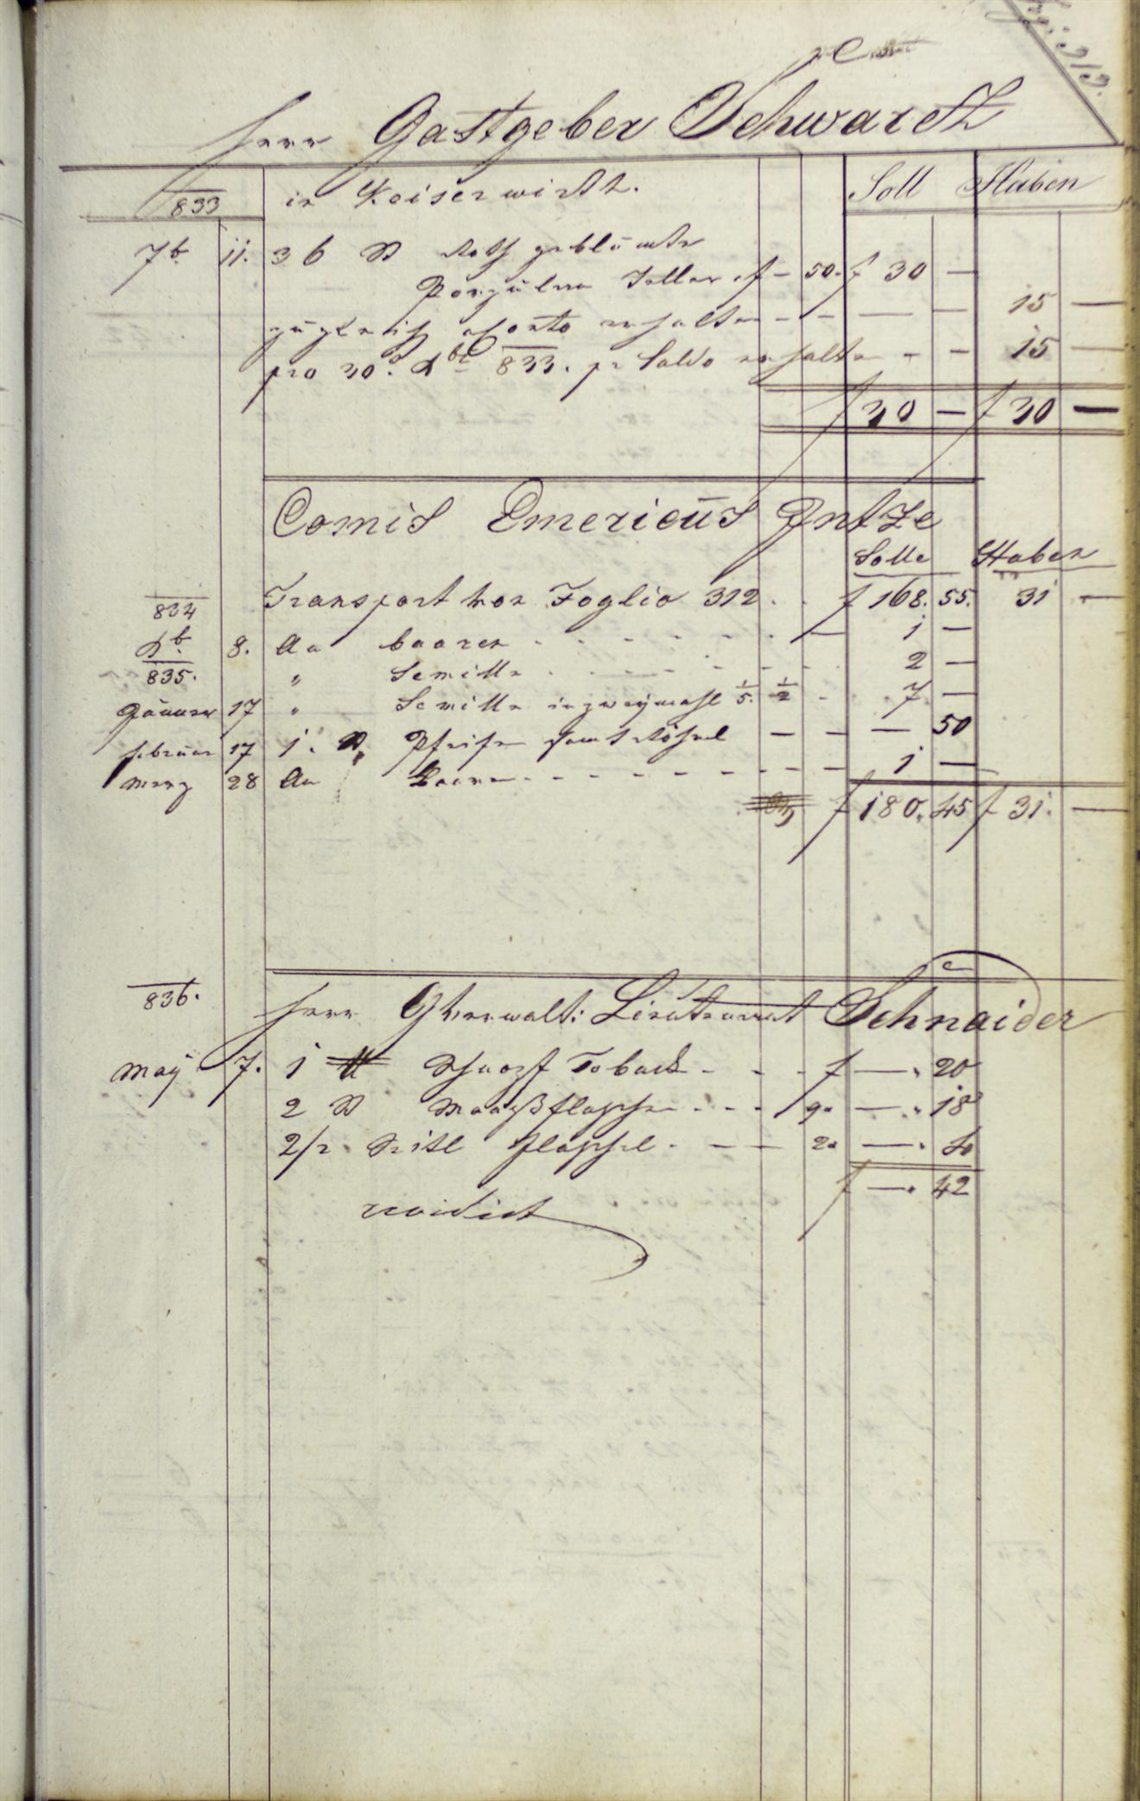 313.
Herr Gastgeber Schwartz
833 in Kaiser wirth. Soll Haben
7b. 11. 36 St Roth geblümte
Porzülene Teller f — 50. f 30 —
zugleich erhalten - - — — 15 —
pro 30. Xbr 833. pr Saldo erhalten - - 15 —
f 30 — f 30 —
Comis Emericus
Solle Haben
834 Transport von Foglio 312 . . f 168. 55. 31 —
Xb. 8. An baaren - - - - 1 —
835. " Semille - - - - 2 —
Jänner 17 " Semille in zweymahl 5. 1/2 . 7 —
Februar 17 1. St Pfeife samt Röhrl — — — 50
Merz 28 An Baare - - - - 1 —
f 180. 45 f 31. —
836. Herr Lieutenant Schnaider
May 7. 1 ℔ Schnopf Taback - - - f — . 20
2 St Maaß flasche - - - 9. — . 18
2/2. Seitl flaschl - — — 2. — . 4
f — . 42